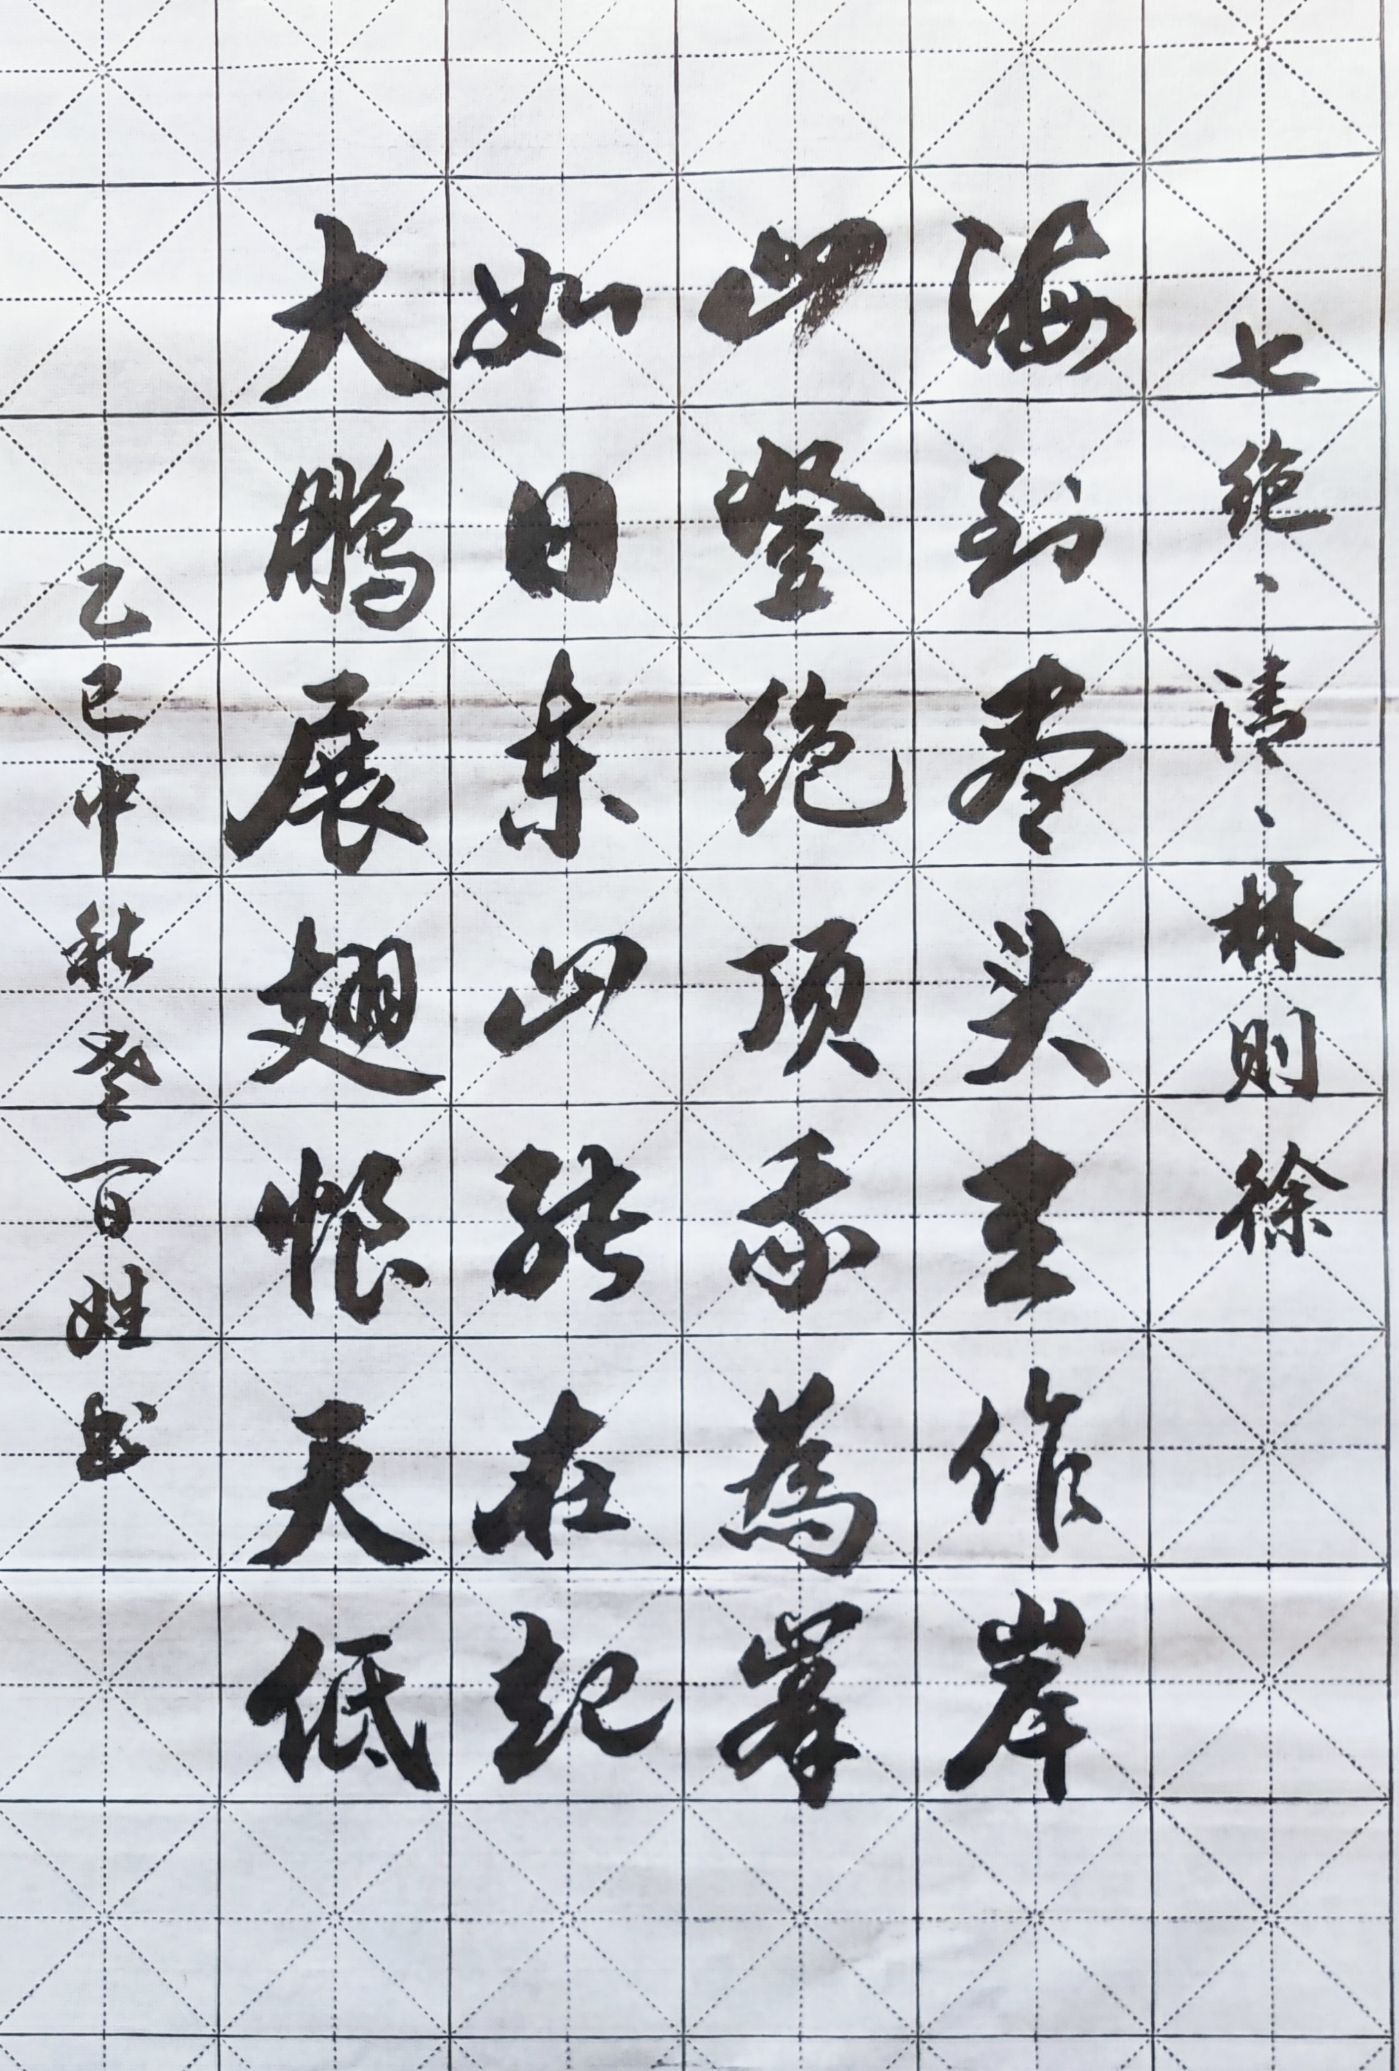 七绝、清、林则徐
海到尽头天作岸
山登绝顶我為峯
如日东山能再起
大鹏展翅恨天低
乙巳中秋登百姓书